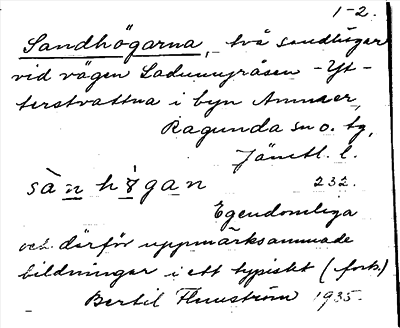 1-2.
Sandhögarna, två sandhögar
vid vägen Ladumyråsen - Yt-
terstvattna i byn Ammer,
Ragunda sn o. tg,
Jämtl. l.
sà n hö̀gan 232.
Egendomliga
och därför uppmärksammade
bildningar i ett typiskt (forts.)
Bertil Flemström 1935.